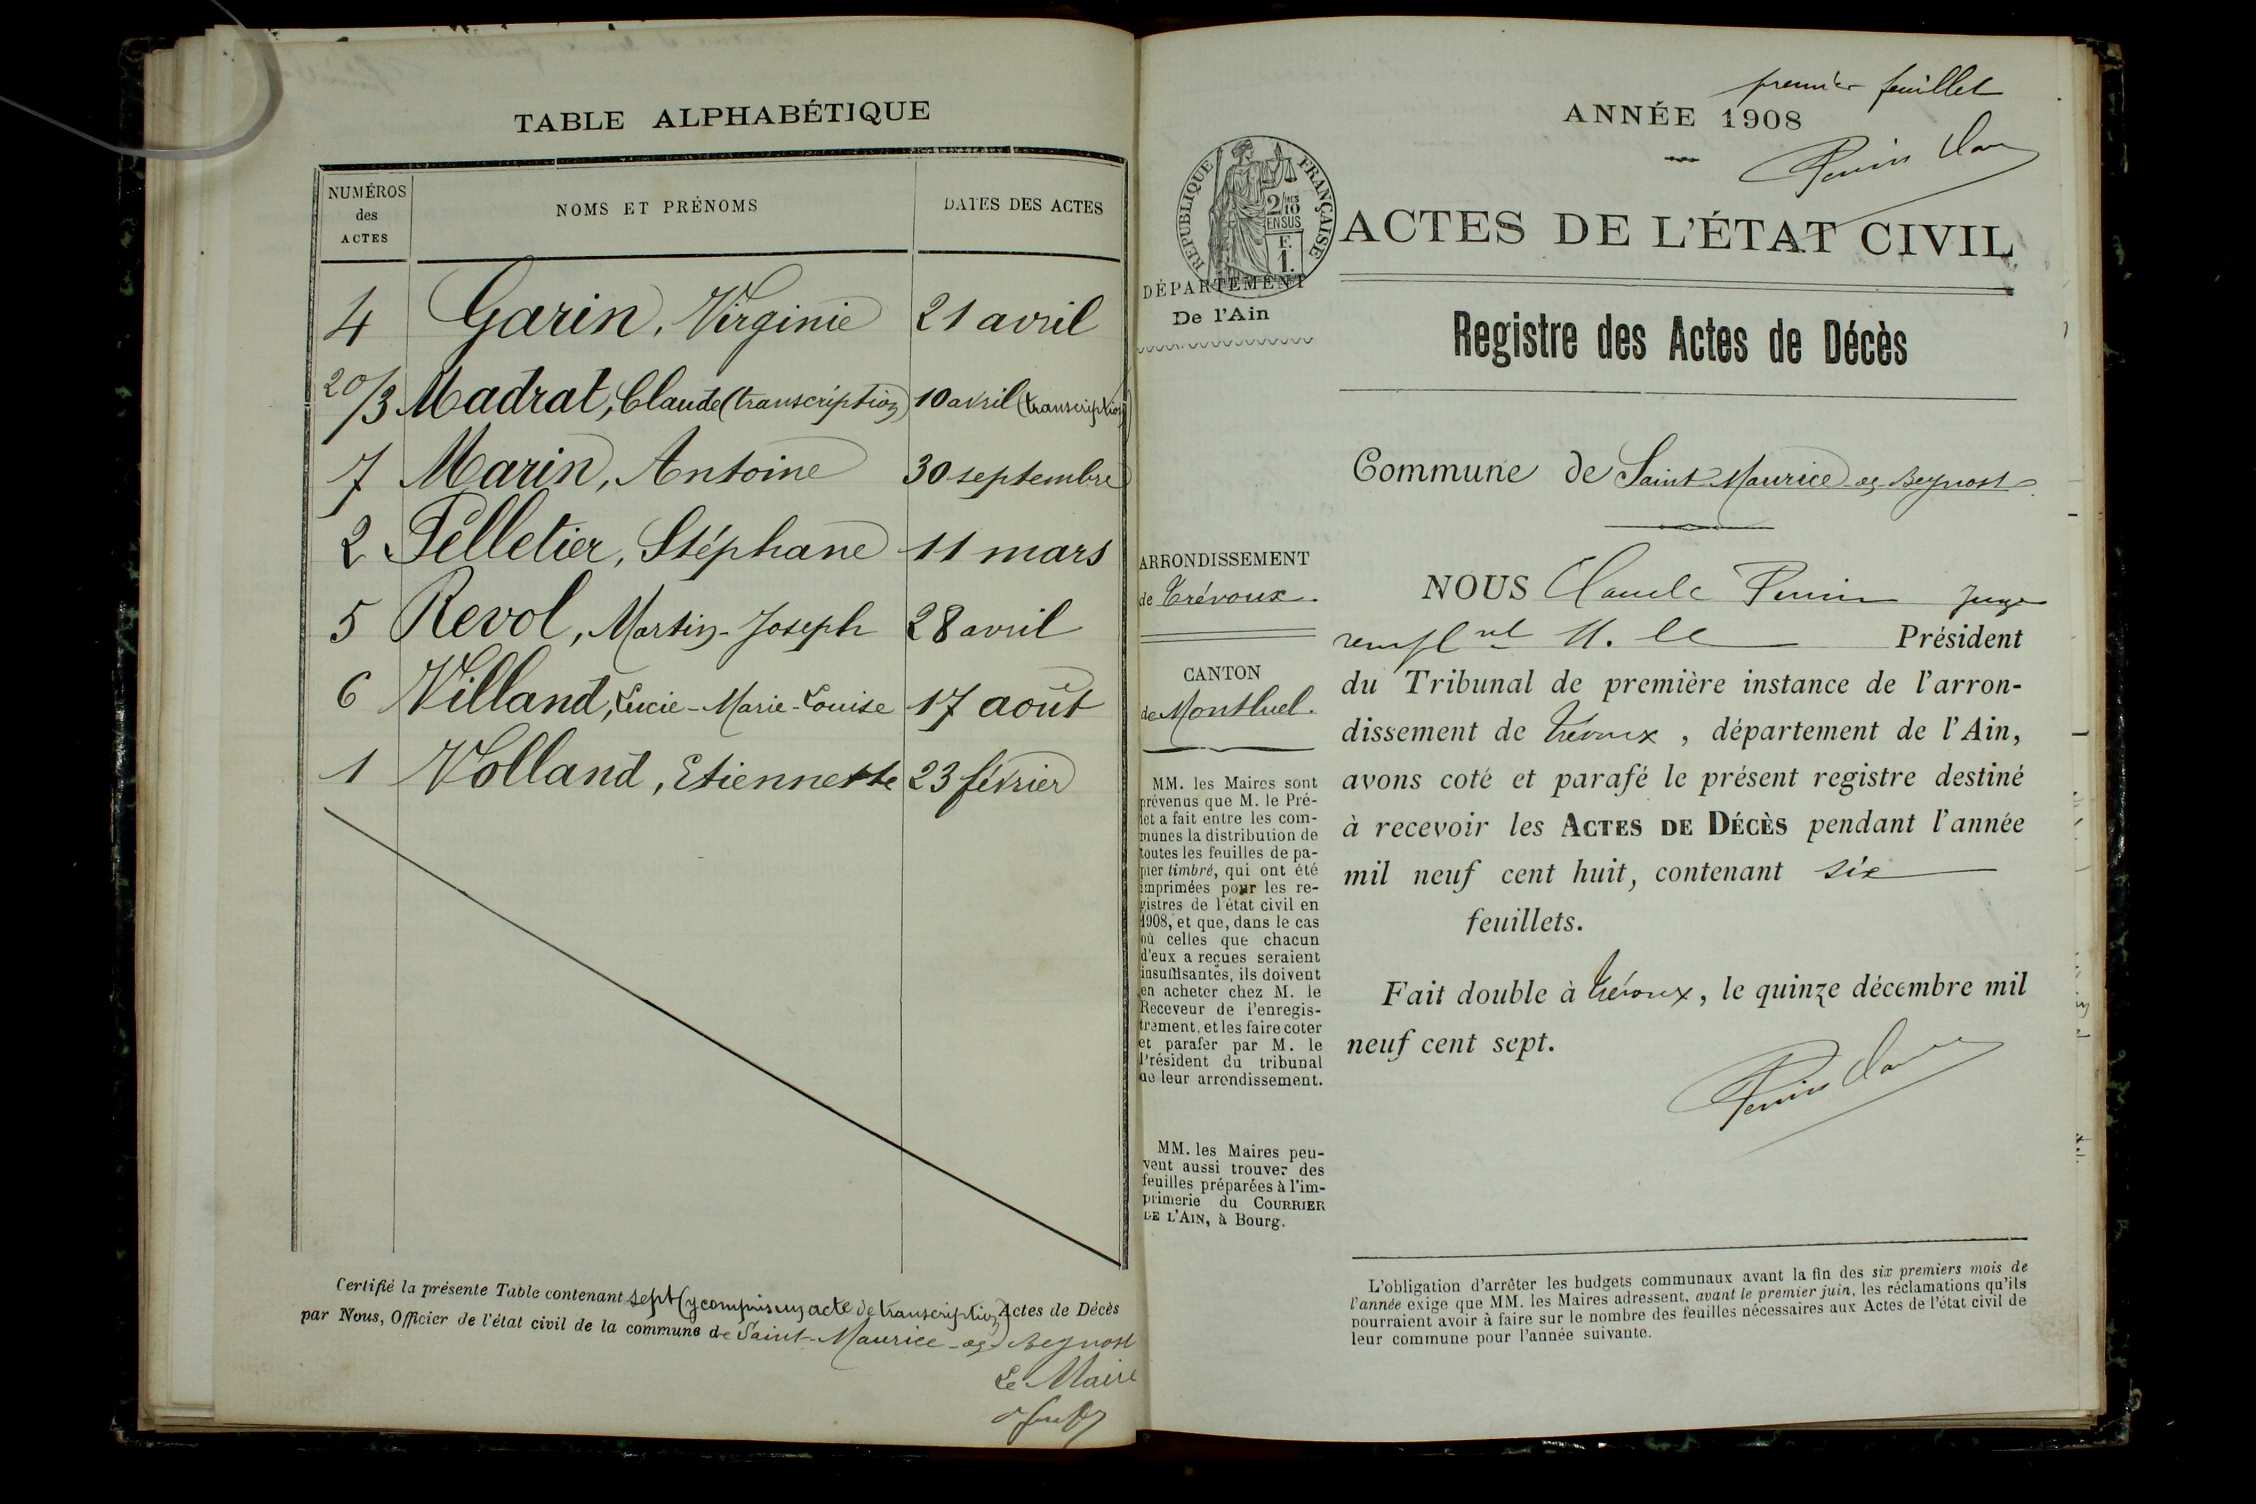 TABLE ALPHABÉTIQUE
NUMÉROS des ACTES
NOMS ET PRÉNOMS
DATES DES ACTES
4 Garin, Virginie 21 avril
20/3 Madrat, Claude (transcription) 10 avril (transcription)
7 Marin, Antoine 30 septembre
2 Pelletier, Stéphane 11 mars
5 Revol, Martin-Joseph 28 avril
6 Villand, Lucie-Marie-Louise 17 août
1 Volland, Etiennette 23 février
Certifié la présente Table contenant sept (y compris un acte de transcription) Actes de Décès
par Nous, Officier de l'état civil de la commune de Saint-Maurice-de-Beynost
Le Maire
premier feuillet
ANNÉE 1908
RÉPUBLIQUE FRANÇAISE
2/10
EN SUS
F.
1.
ACTES DE L'ÉTAT CIVIL
DÉPARTEMENT
De l'Ain
Registre des Actes de Décès
Commune de Saint-Maurice-de-Beynost
ARRONDISSEMENT
de Trévoux.
CANTON
de Montluel.
MM. les Maires sont
prévenus que M. le Pré-
fet a fait entre les com-
munes la distribution de
toutes les feuilles de pa-
pier timbré, qui ont été
imprimées pour les re-
gistres de l'état civil en
1908, et que, dans le cas
où celles que chacun
d'eux a reçues seraient
insuffisantes, ils doivent
en acheter chez M. le
Receveur de l'enregis-
trement, et les faire coter
et parafer par M. le
Président du tribunal
de leur arrondissement.
MM. les Maires peu-
vent aussi trouver des
feuilles préparées à l'im-
primerie du COURRIER
DE L'AIN, à Bourg.
NOUS Claude Perrin juge
M. le Président
du Tribunal de première instance de l'arron-
dissement de Trévoux, département de l'Ain,
avons coté et parafé le présent registre destiné
à recevoir les ACTES DE DÉCÈS pendant l'année
mil neuf cent huit, contenant six
feuillets.
Fait double à Trévoux, le quinze décembre mil
neuf cent sept.
L'obligation d'arrêter les budgets communaux avant la fin des six premiers mois de
l'année exige que MM. les Maires adressent, avant le premier juin, les réclamations qu'ils
pourraient avoir à faire sur le nombre des feuilles nécessaires aux Actes de l'état civil de
leur commune pour l'année suivante.